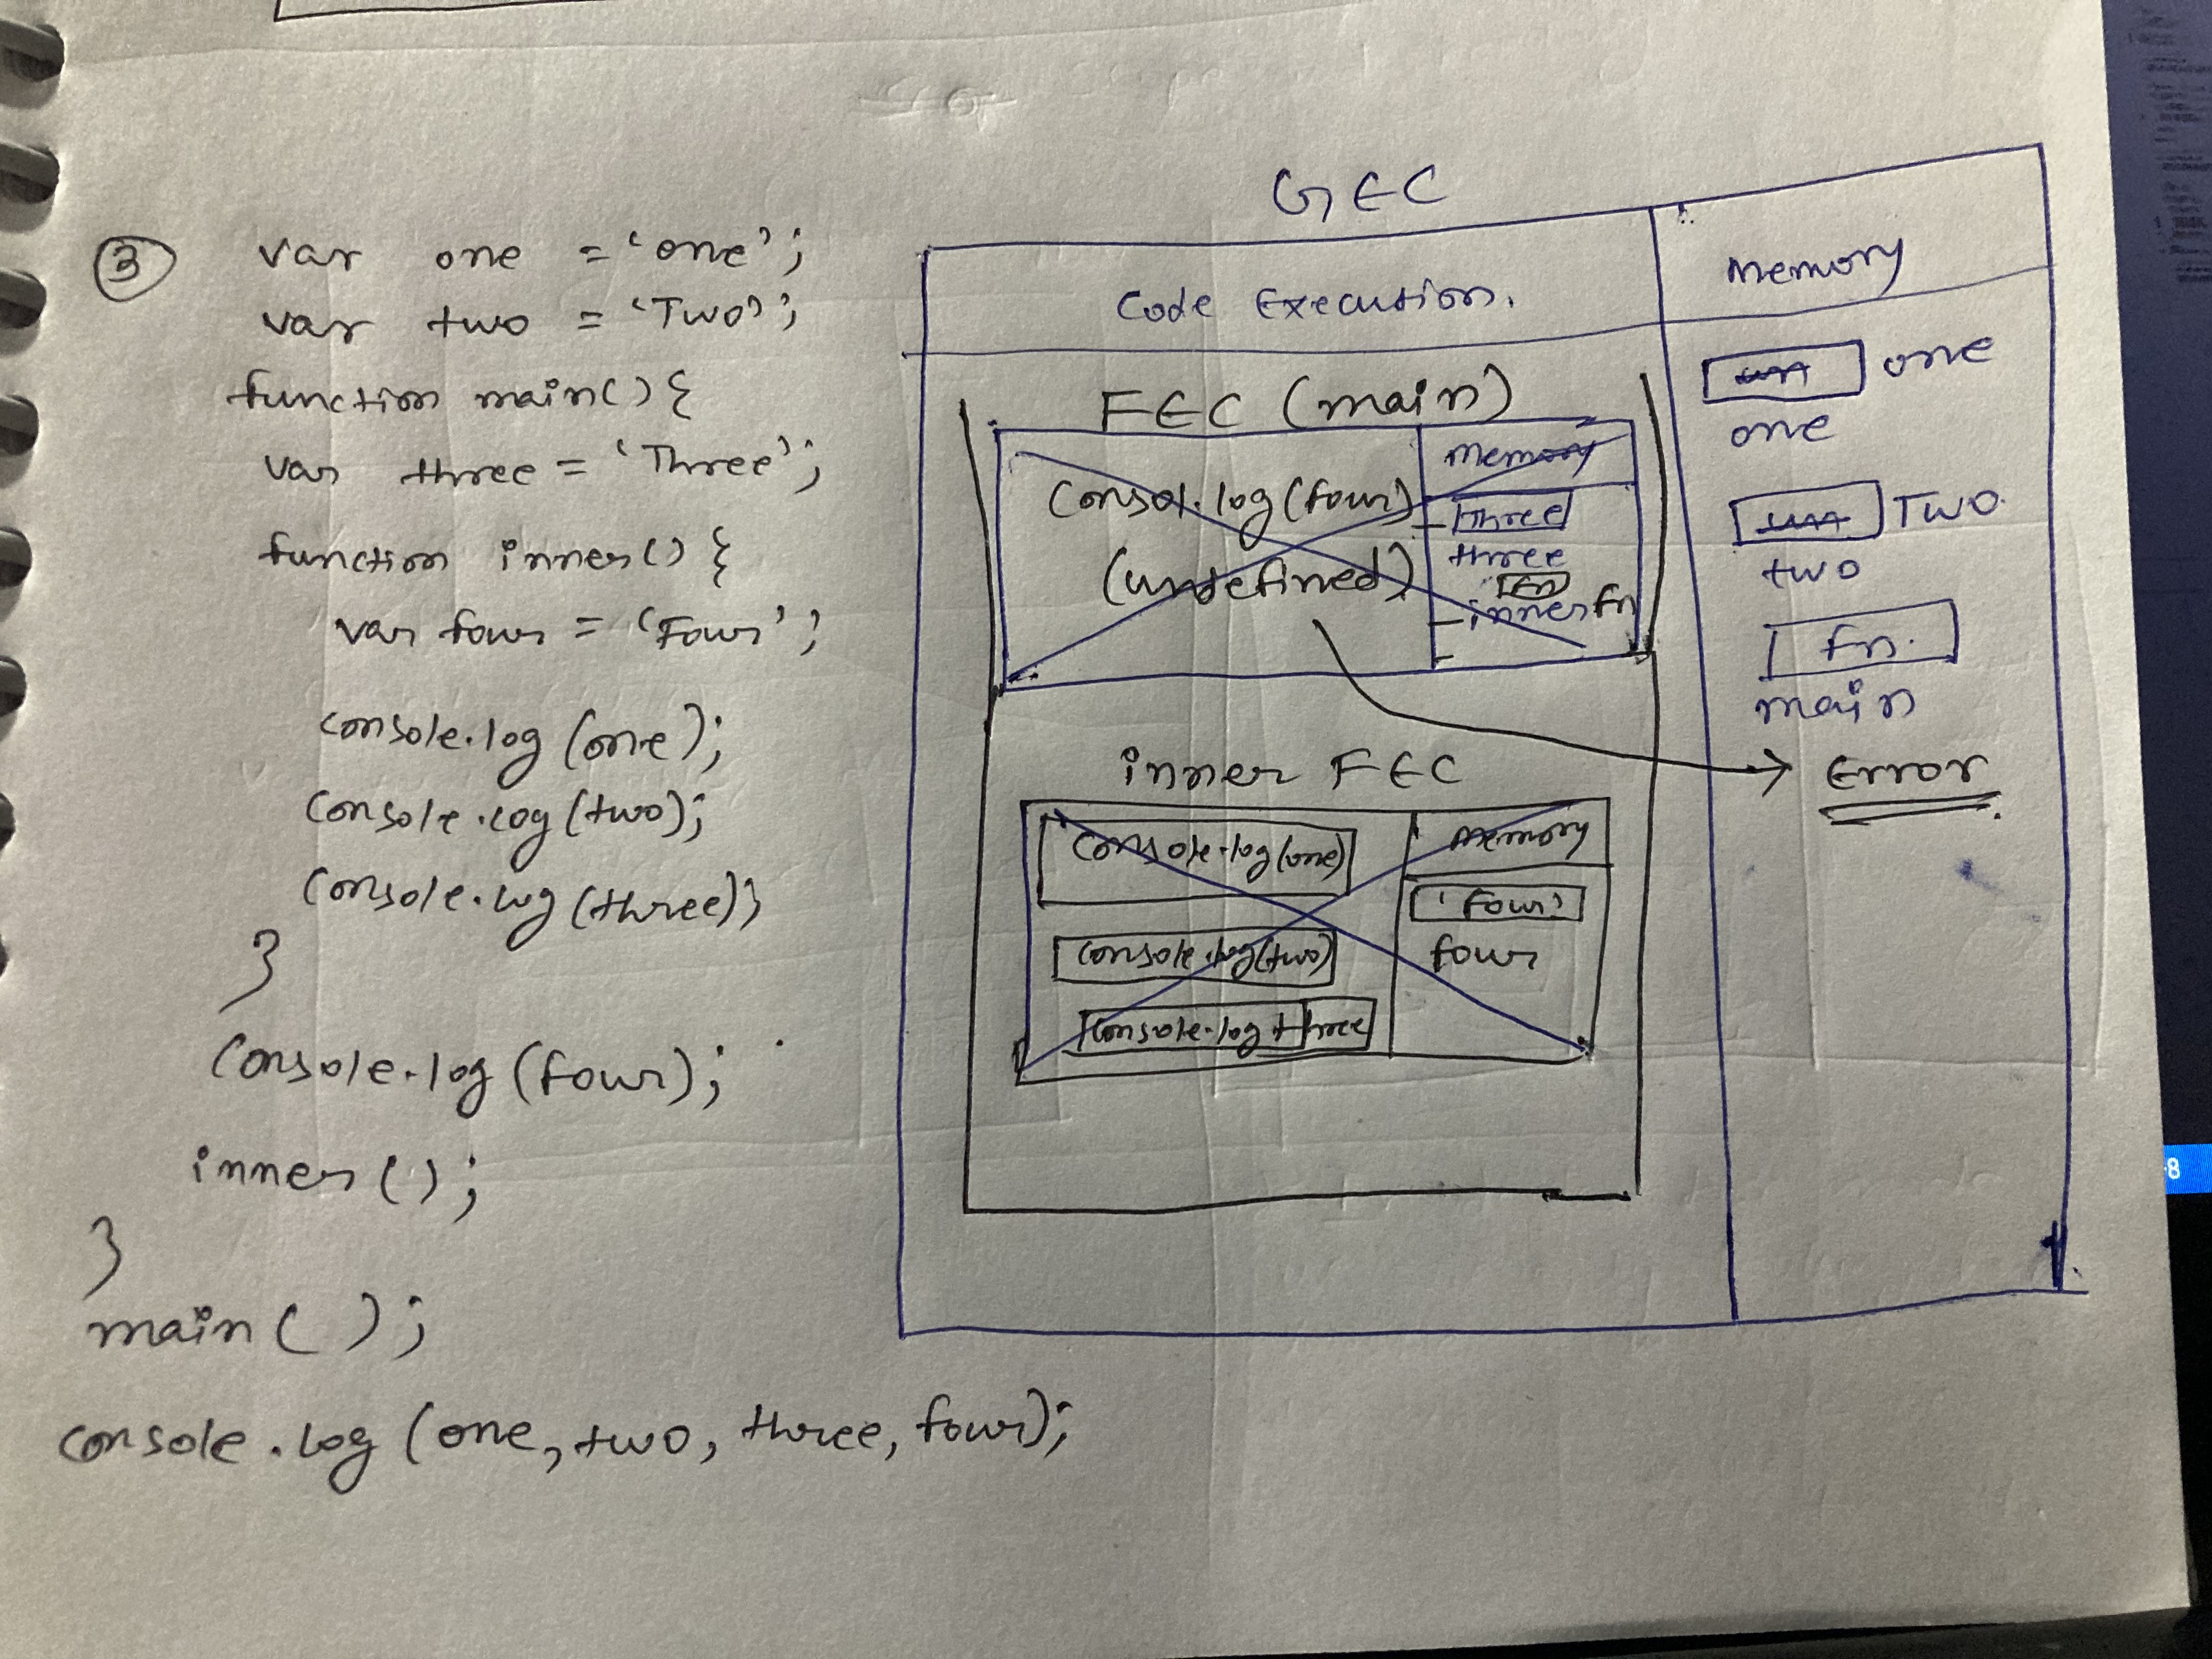 3
var one = 'one';
var two = 'Two';
function main() {
var three = 'Three';
function inner() {
var four = 'Four';
console.log (one);
console.log (two);
console.log (three);
}
console.log (four);
inner ();
}
main ( );
console.log (one, two, three, four);
GEC
Code Execution.
Memory
FEC (main)
Consol.log (four)
(undefined)
Memory
three
three
fn
inner fn
inner FEC
console.log (one)
console.log (two)
console.log three
Memory
'Four'
four
one
one
Two
two
fn.
main
Error
8